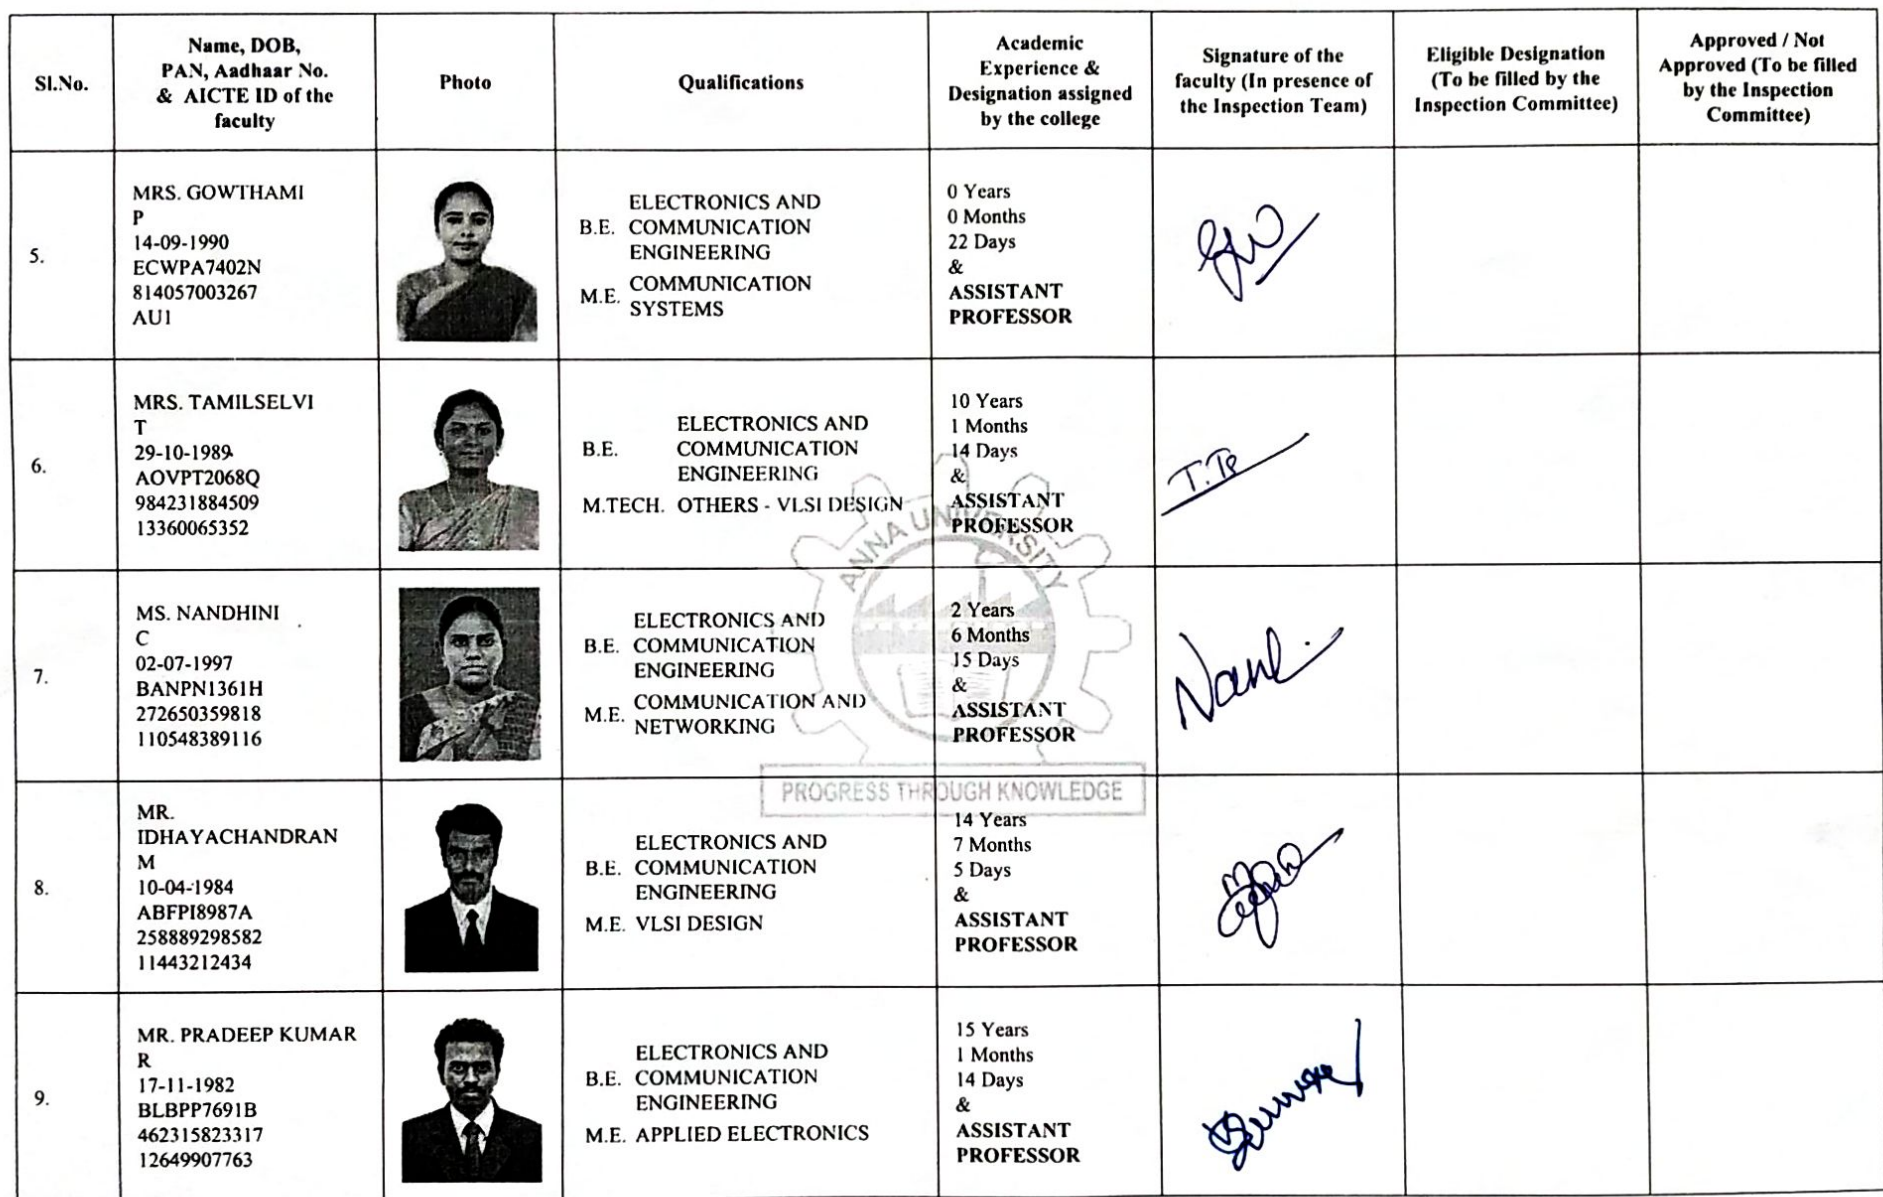 Sl.No.
Name, DOB,
PAN, Aadhaar No.
& AICTE ID of the
faculty
Photo
Qualifications
Academic
Experience &
Designation assigned
by the college
Signature of the
faculty (In presence of
the Inspection Team)
Eligible Designation
(To be filled by the
Inspection Committee)
Approved / Not
Approved (To be filled
by the Inspection
Committee)
5.
MRS. GOWTHAMI
P
14-09-1990
ECWPA7402N
814057003267
AU1
B.E. ELECTRONICS AND
COMMUNICATION
ENGINEERING
M.E. COMMUNICATION
SYSTEMS
0 Years
0 Months
22 Days
&
ASSISTANT
PROFESSOR
6.
MRS. TAMILSELVI
T
29-10-1989
AOVPT2068Q
984231884509
13360065352
B.E. ELECTRONICS AND
COMMUNICATION
ENGINEERING
M.TECH. OTHERS - VLSI DESIGN
10 Years
1 Months
14 Days
&
ASSISTANT
PROFESSOR
7.
MS. NANDHINI
C
02-07-1997
BANPN1361H
272650359818
110548389116
B.E. ELECTRONICS AND
COMMUNICATION
ENGINEERING
M.E. COMMUNICATION AND
NETWORKING
2 Years
6 Months
15 Days
&
ASSISTANT
PROFESSOR
ANNA UNIVERSITY
PROGRESS THROUGH KNOWLEDGE
8.
MR.
IDHAYACHANDRAN
M
10-04-1984
ABFPI8987A
258889298582
11443212434
B.E. ELECTRONICS AND
COMMUNICATION
ENGINEERING
M.E. VLSI DESIGN
14 Years
7 Months
5 Days
&
ASSISTANT
PROFESSOR
9.
MR. PRADEEP KUMAR
R
17-11-1982
BLBPP7691B
462315823317
12649907763
B.E. ELECTRONICS AND
COMMUNICATION
ENGINEERING
M.E. APPLIED ELECTRONICS
15 Years
1 Months
14 Days
&
ASSISTANT
PROFESSOR